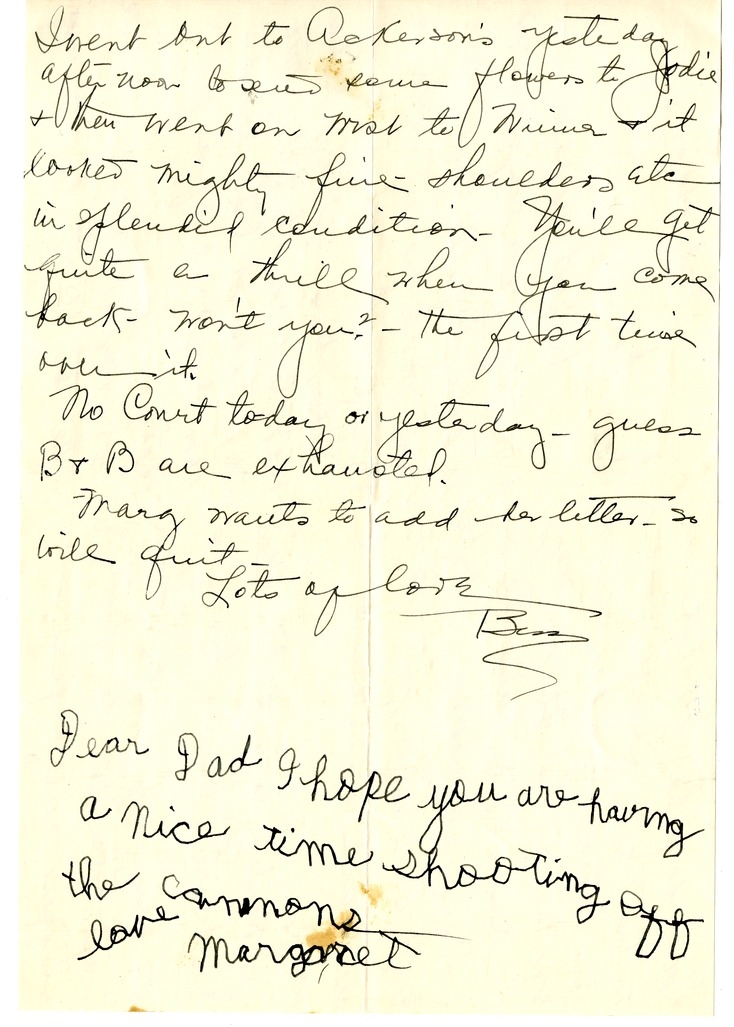 I went out to Ackerson's yesterday
afternoon to send some flowers to Jodie
& then went on west to & it
looked mighty fine - shoulders etc
in splendid condition - You'll get
quite a thrill when you come
back - won't you? - the first time
over it.
No Court today or yesterday - guess
B & B are exhausted.
Marg wants to add her letter - so
will quit -
Lots of love
Bess
Dear Dad I hope you are having
a nice time shooting off
the cannons
love
Margaret